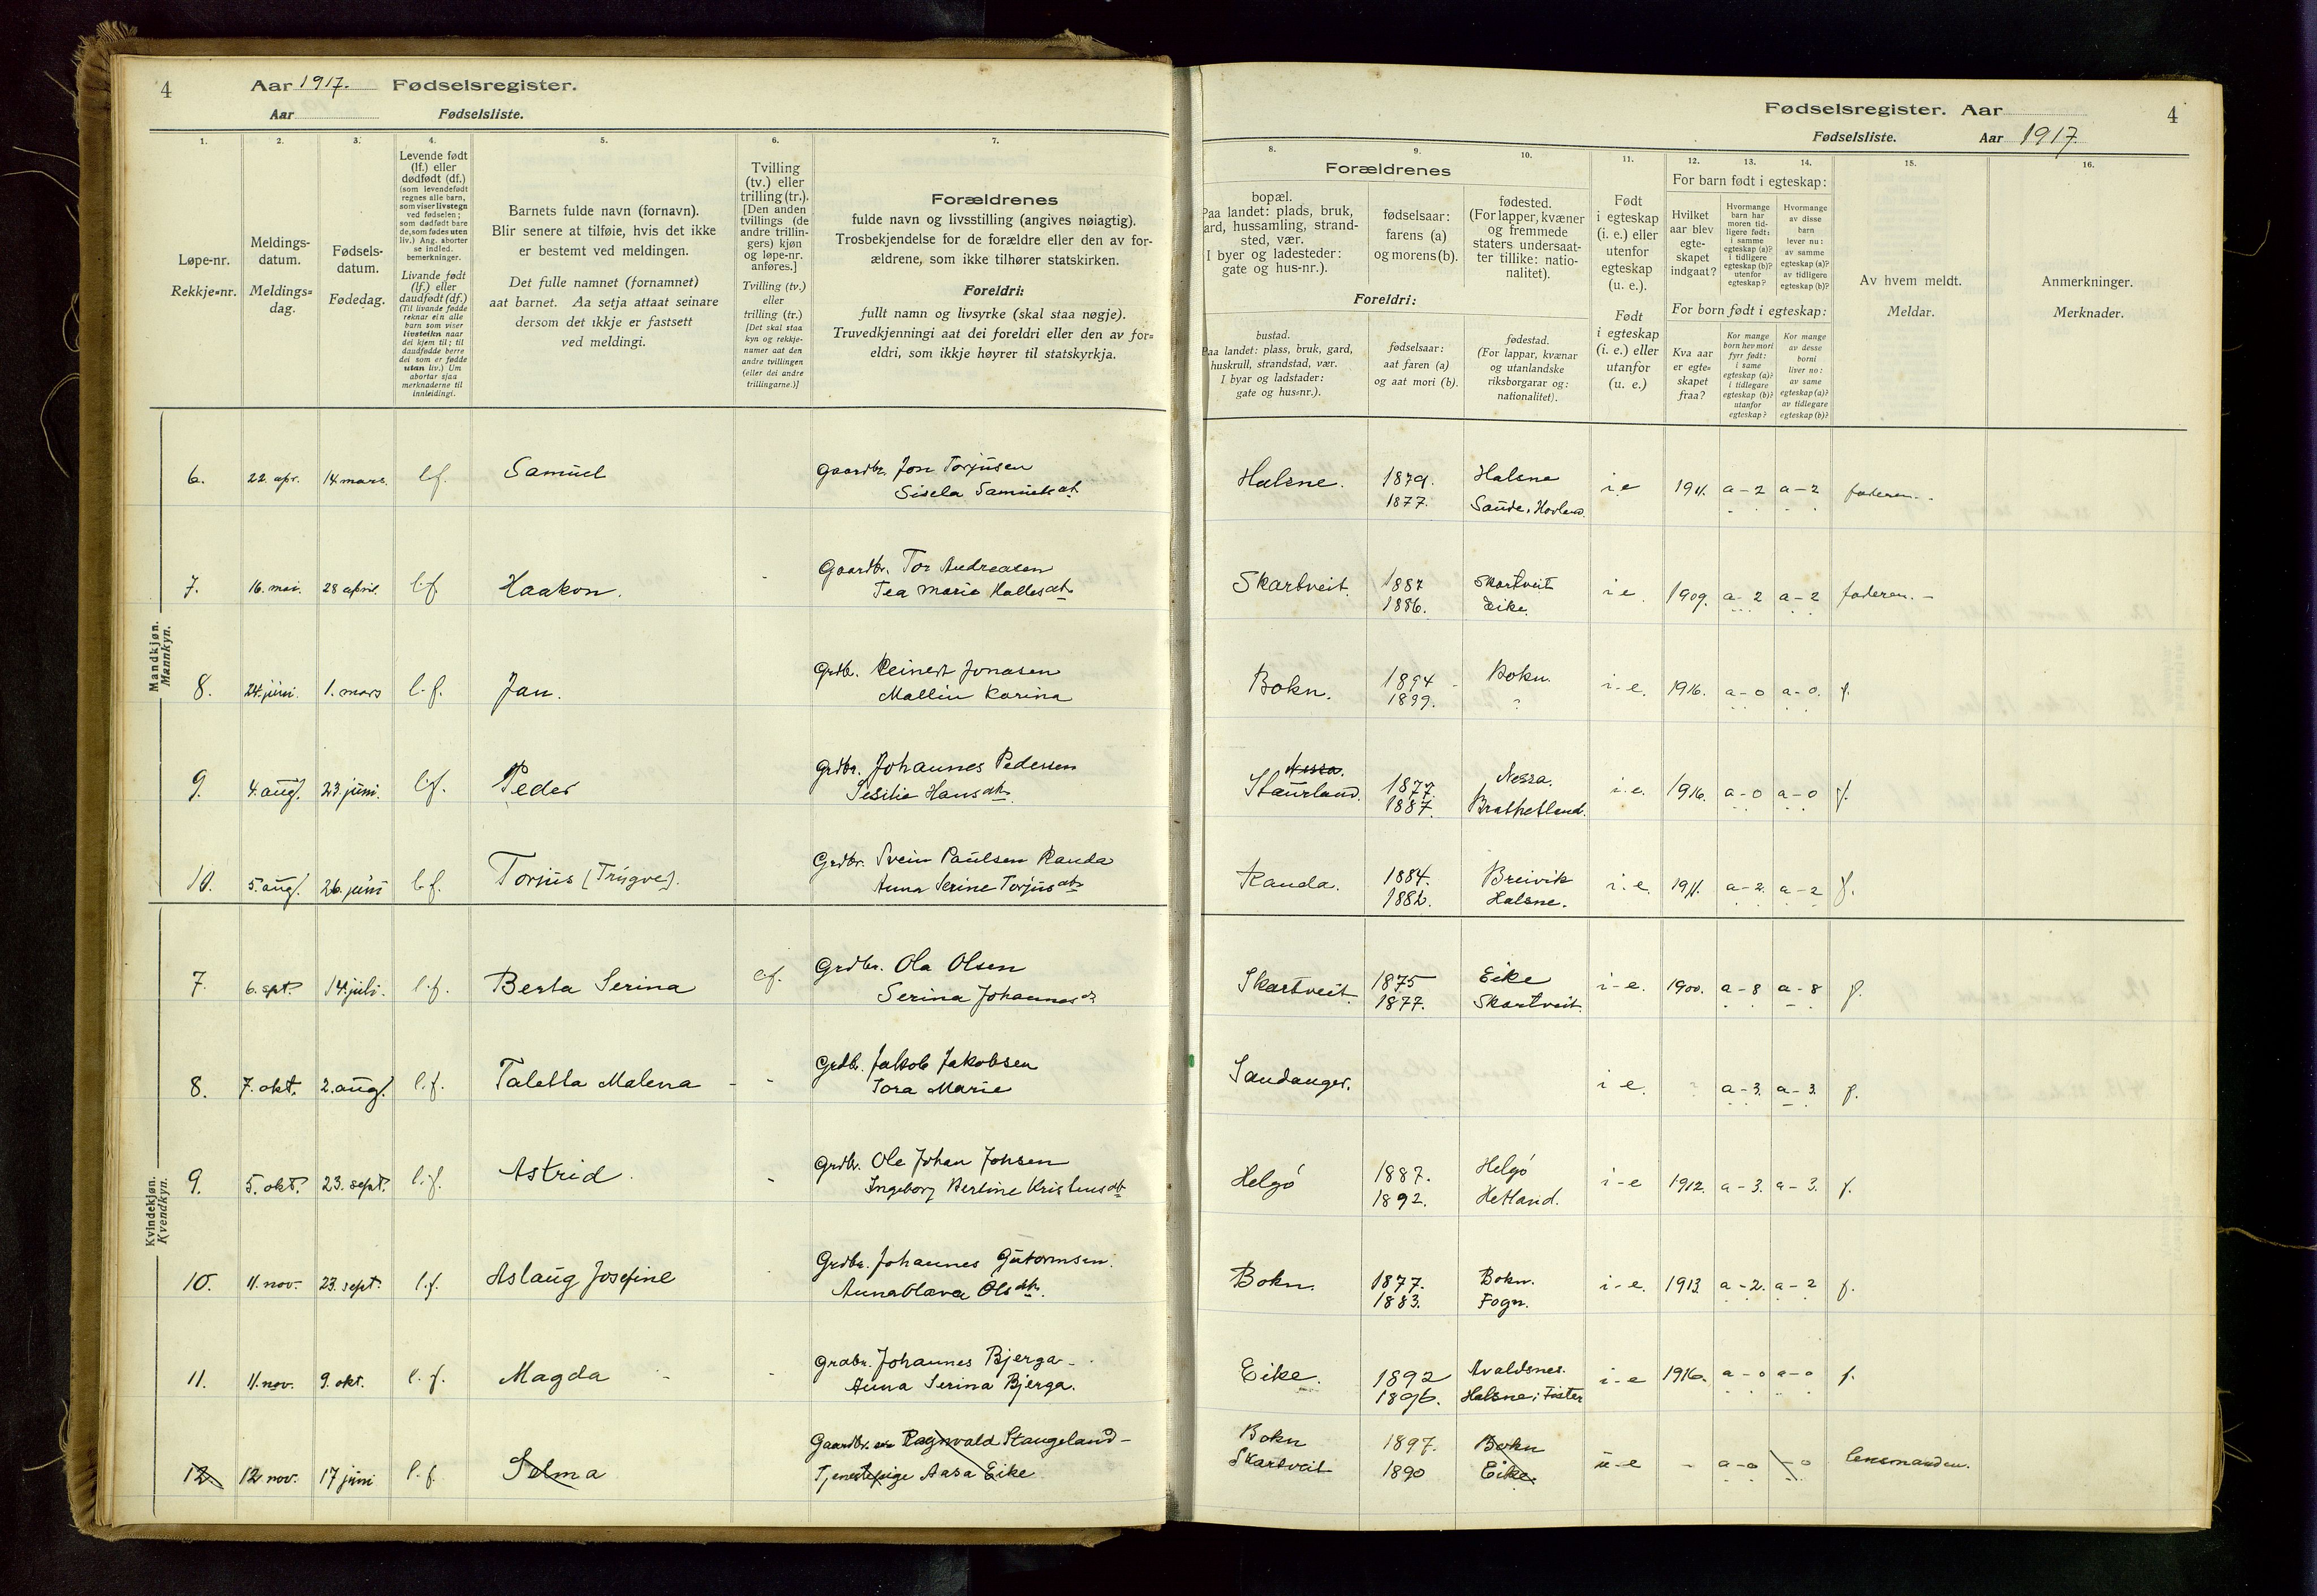 4
Aar 1917. Fødselsregister.
Aar Fødselsliste.
1.
Løpe-nr.
Rekkje-nr.
2.
Meldings-
datum.
Meldings-
dag.
3.
Fødsels-
datum.
Fødedag.
4.
Levende født
(lf.) eller
dødfødt (df.)
(som levendefødt
regnes alle barn,
som viser livstegn
ved fødselen;
som dødfødt bare
de, som fødes uten
liv.) Ang. aborter
se indled.
bemerkninger.
Livande født
(lf.) eller
daudfødt (df.)
(Til livande fødde
reknar ein alle
barn som viser
livsteikn naar
dei kjem til; til
daudfødde berre
dei som er fødde
utan liv.) Um
abortar sjaa
merknaderne til
innleidingi.
5.
Barnets fulde navn (fornavn).
Blir senere at tilføie, hvis det ikke
er bestemt ved meldingen.
Det fulle namnet (fornamnet)
aat barnet. Aa setja attaat seinare
dersom det ikkje er fastsett
ved meldingi.
6.
Tvilling
(tv.) eller
trilling (tr.).
[Den anden
tvillings (de
andre trillin-
gers) kjøn
og løpe-nr.
anføres.]
Tvilling (tv.)
eller
trilling (tr.)
[Det skal staa
kyn og rekkje-
numer aat den
andre tvillingen
(eller dei andre
trillingarne.)]
7.
Forældrenes
fulde navn og livsstilling (angives nøiagtig).
Trosbekjendelse for de forældre eller den av for-
ældrene, som ikke tilhører statskirken.
Foreldri:
fullt namn og livsyrke (skal staa nøgje).
Truvedkjenningi aat dei foreldri eller den av for-
eldri, som ikkje høyrer til statskyrkja.
Mandkjøn.
Mannkyn.
6. 22. apr. 14. mars. l.f. Samuel Gaardbr. Jon Torjusen
Sisela Samuelsdt.
7. 16. mai. 28 april. l.f. Haakon. Gaardbr. Tor Andreasen
Tea Marie Hallesdt.
8. 24. juni. 1. mars l.f. Jan. Grdb. Reinert Jonasen
Mallin Karina
9. 4. aug. 23. juni. l.f. Peder Grdbr. Johannes Pedersen
Sesilie Hansdt.
10. 5. aug. 26. juni l.f. Torjus [Trygve]. Grdbr. Svein Paulsen Randa
Anna Serine Torjusdt.
Kvindekjøn.
Kvendkyn.
7. 6. spt. 14. juli. l.f. Berta Serina l.f. Grdbr. Ola Olsen
Serina Johannesdt.
8. 7. okt. 2. aug. l.f. Taletta Malena - - Grdb. Jakob Jakobsen
Tora Marie
9. 5. okt. 23. sept. l.f. Astrid. - Grdbr. Ole Johan Johsen
Ingeborg Bertine Kristensdt.
10. 11. nov. 23. sept. l.f. Aslaug Josefine Grdbr. Johannes Gutormsen.
Anna Olava Olsdt.
11. 11. nov. 9. okt. l.f. Magda - Grdbr. Johannes Bjerga.
Anna Serina Bjerga.
12. 12. nov. 17 juni l.f. Selma Gaardbr. Ragnvald Stangeland -
Tjenestepige Aasa Eike
Fødselsregister. Aar
4
Fødselsliste. Aar 1917.
Forældrenes
8.
bopæl.
Paa landet: plads, bruk,
ard, hussamling, strand-
sted, vær.
I byer og ladesteder:
gate og hus-nr.).
9.
fødselsaar:
farens (a)
og morens (b).
10.
fødested.
(For lapper, kvæner
og fremmede
staters undersaat-
ter tillike: natio-
nalitet).
Foreldri:
bustad.
Paa landet: plass, bruk, gard,
huskrull, strandstad, vær.
I byar og ladstader:
gate og hus-nr.).
fødselsaar:
aat faren (a)
og aat mori (b).
fødestad.
(For lappar, kvænar
og utanlandske
riksborgarar og:
nationalitet).
11.
Født
i egteskap
(i. e.) eller
utenfor
egteskap
(u. e.).
Født
i egteskap
(i. e.) eller
utanfor
(u. e.)
For barn født i egteskap:
12.
Hvilket
aar blev
egte-
skapet
indgaat?
13.
Hvormange
barn har
moren tid-
ligere født:
i samme
egteskap (a)?
i tidligere
egteskap (b)?
utenfor
egteskap?
14.
Hvormange
av disse
barn
lever nu:
av samme
egteskap (a)?
av tidligere
egteskap (b)?
For born født i egteskap:
Kva aar
er egte-
skapet
fraa?
Kor mange
born hev mori
fyrr født:
i same
egteskap (a)?
i tidlegare
egteskap (b)?
utanfor
egteskap?
Kor mange
av desse
borni
liver no:
av same
egteskap (a)?
av tidlegare
egteskap (b)?
15.
Av hvem meldt.
Meldar.
16.
Anmerkninger.
Merknader.
Halsne. 1879. Halsne i e 1911. a - 2 a - 2 faderen. -
1877. Saude, Hovland.
Skartveit. 1887 Skartveit i e. 1909. a - 2 a - 2 faderen. -
1886. Eike.
Bokn. 1894 Bokn. i-e. 1916. a - 0 a - 0. f.
1899. ?
Nessa.
Staurland. 1877. Nessa. i.e. 1916. a - 0 a - 0 f.
1887. Brathetland.
Randa. 1884. Breivik i-e. 1911. a - 2. a - 2 f.
1882. Halsne.
Skartveit. 1875 Eike i-e. 1900. a - 8 a - 8 f.
1877. Skartveit.
Sandanger. i e. ? a - 3. a - 3. f.
Helgö 1887. Helgö i-e 1912. a - 3. a - 3. f.
1892. Hetland.
Bokn. 1877. Bokn. i-e. 1913. a - 2. a - 2 f.
1883. Fogn.
Eike. 1892 Avaldsnes. i-e 1916. a - 0 a - 0 f.
1896. Halsne i Fister
Bokn 1897. Bokn u-e - a - 0 - 0 lensmanden.
Skartveit 1890 Eike.